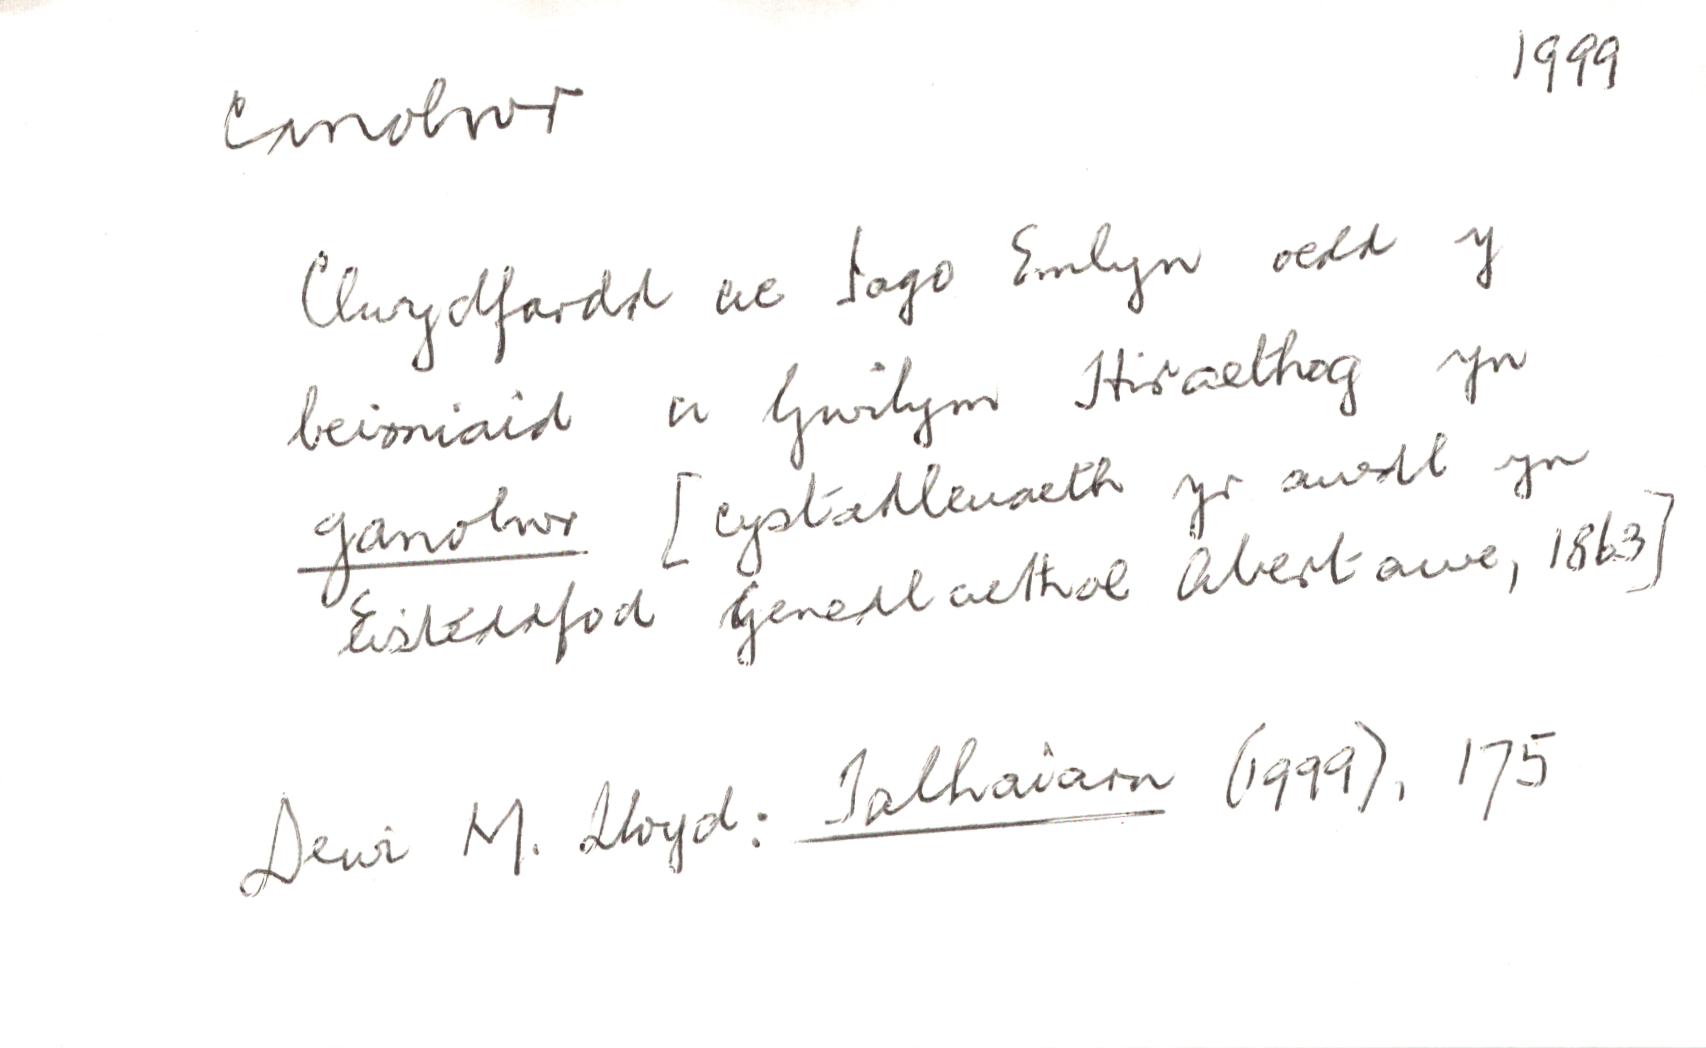 1999
canolwr
Clwydfardd ac Iago Emlyn oedd y
beirniaid a Gwilym Hiraethog yn
ganolwr [cystadleuaeth yr awdl yn
Eisteddfod Genedlaethol Abertawe, 1863]
Dewi M. Lloyd: Talhaiarn (1999), 175